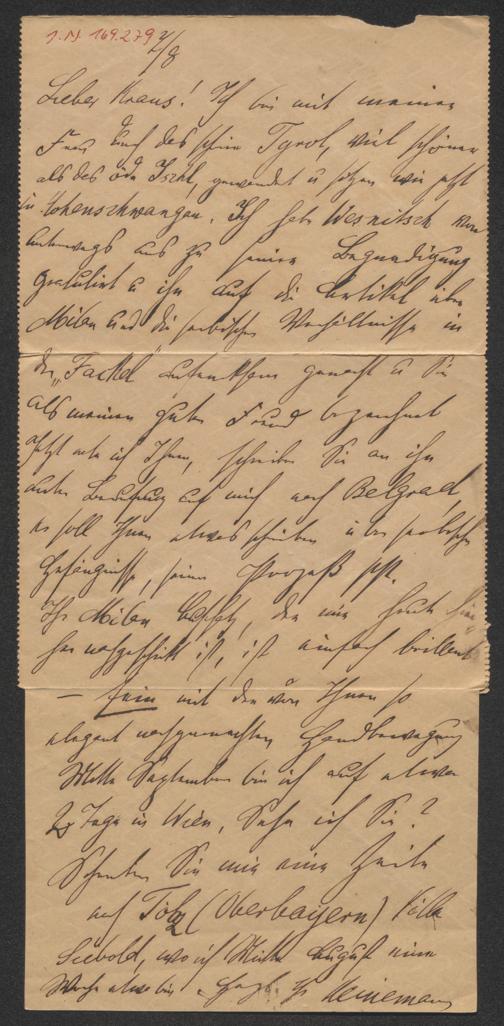 I.N. 169.279
2/8
Lieber Kraus! Ich bin mit meiner
Frau durch das schöne Tyrol, viel schöner
als das öde Ischl, gewandert u sitzen wir jetzt
in Hohenschwangau. Ich habe Wesnitsch von
unterwegs aus zu seiner Begnadigung
gratulirt u ihn auf die Artikel über
Milan und die serbischen Verhältnisse in
der „Fackel" aufmerksam gemacht u Sie
als meinen guten Freund bezeichnet
Jetzt rate ich Ihnen, schreiben Sie an ihn
unter Berufung auf mich nach Belgrad,
er soll Ihnen etwas schreiben über serbische
Gefängnisse, seinen Prozeß etc.
Ihr Milan, der mir heute hier
her nachgeschickt ist, ist einfach brillant
— fein mit der von Ihnen so
elegant nachgemachten Handbewegung
Mitte September bin ich auf etwa
Tage in Wien, Sehe ich Sie?
Schreiben Sie mir eine Zeile
nach Tölz (Oberbayern) Villa
Siebold, wo ich Mitte August eine
Woche etwa bin. Ihr Heinemann